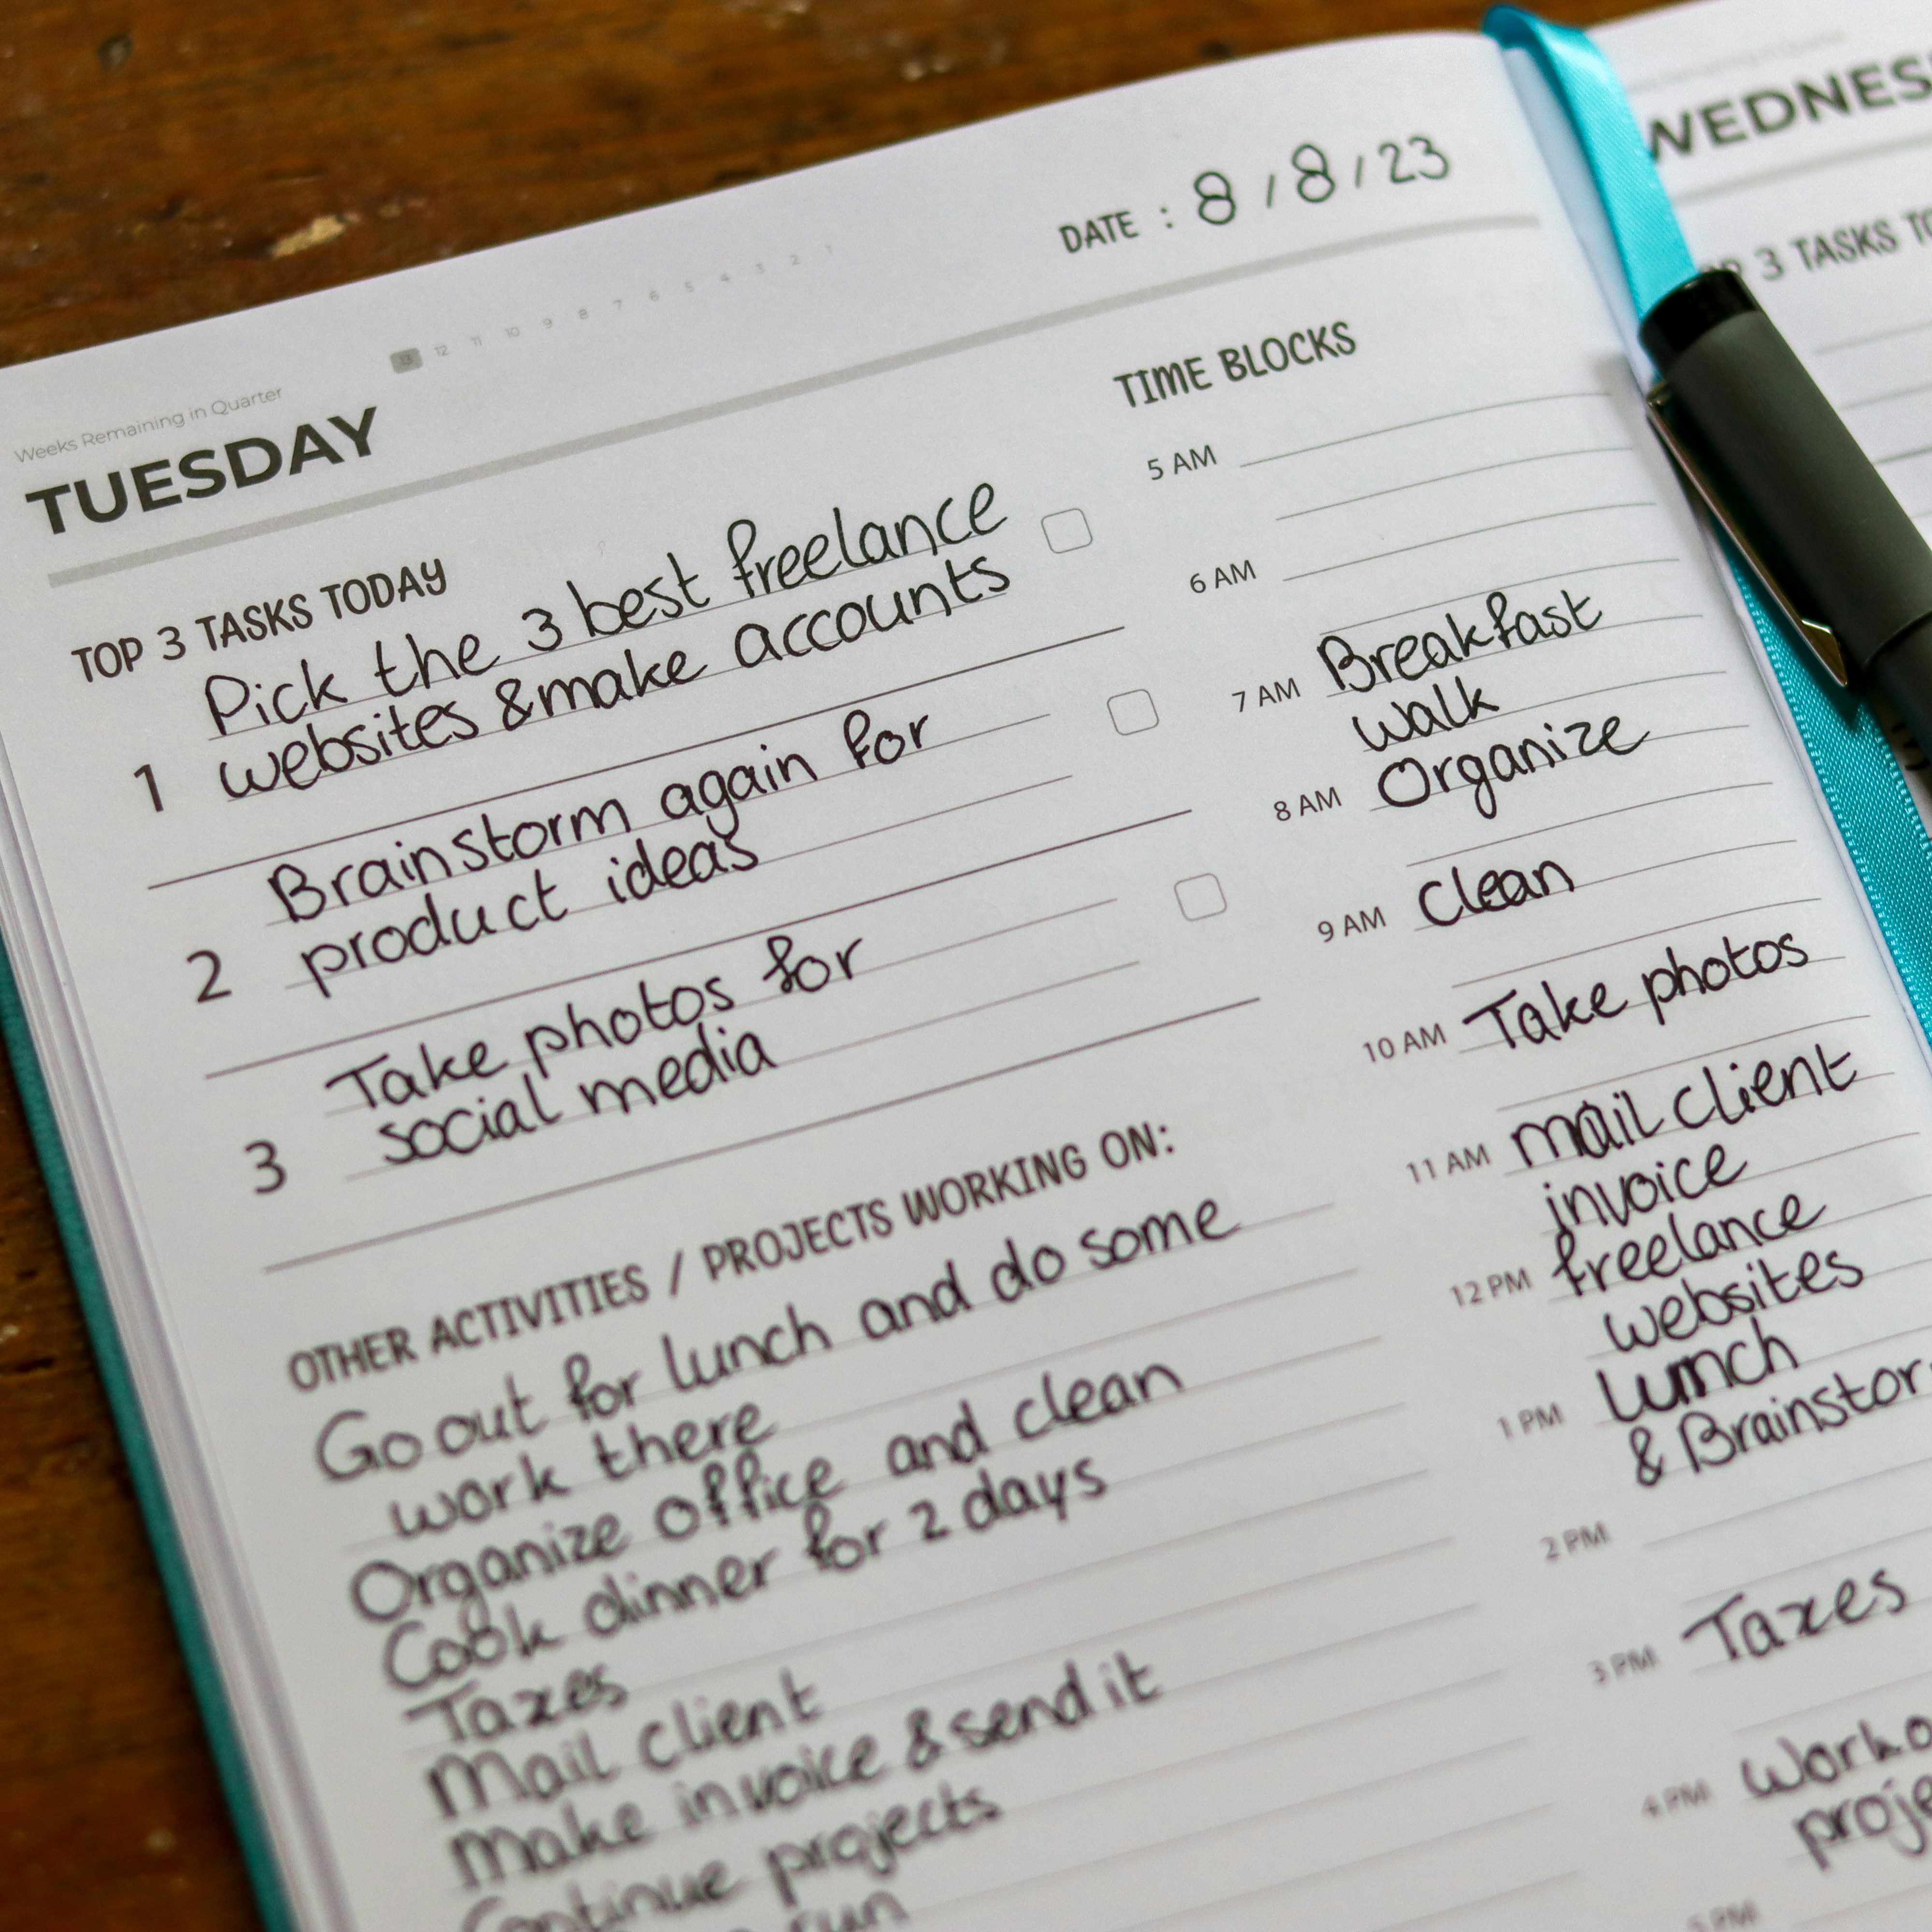 Weeks Remaining in Quarter
13 12 11 10 9 8 7 6 5 4 3 2 1
TUESDAY
DATE : 8 / 8 / 23
TOP 3 TASKS TODAY
Pick the 3 best freelance
1 websites & make accounts
Brainstorm again for
2 product ideas
Take photos for
3 social media
OTHER ACTIVITIES / PROJECTS WORKING ON:
Go out for lunch and do some
work there
Organize office and clean
Cook dinner for 2 days
Taxes
Mail client
Make invoice & send it
Continue projects
run
TIME BLOCKS
5 AM
6 AM
7 AM Breakfast
walk
8 AM Organize
9 AM Clean
10 AM Take photos
11 AM mail client
invoice
12 PM freelance
websites
1 PM Lunch
& Brainstor
2 PM
3 PM Taxes
4 PM Work o
proje
5 PM
WEDNES
3 TASKS TO